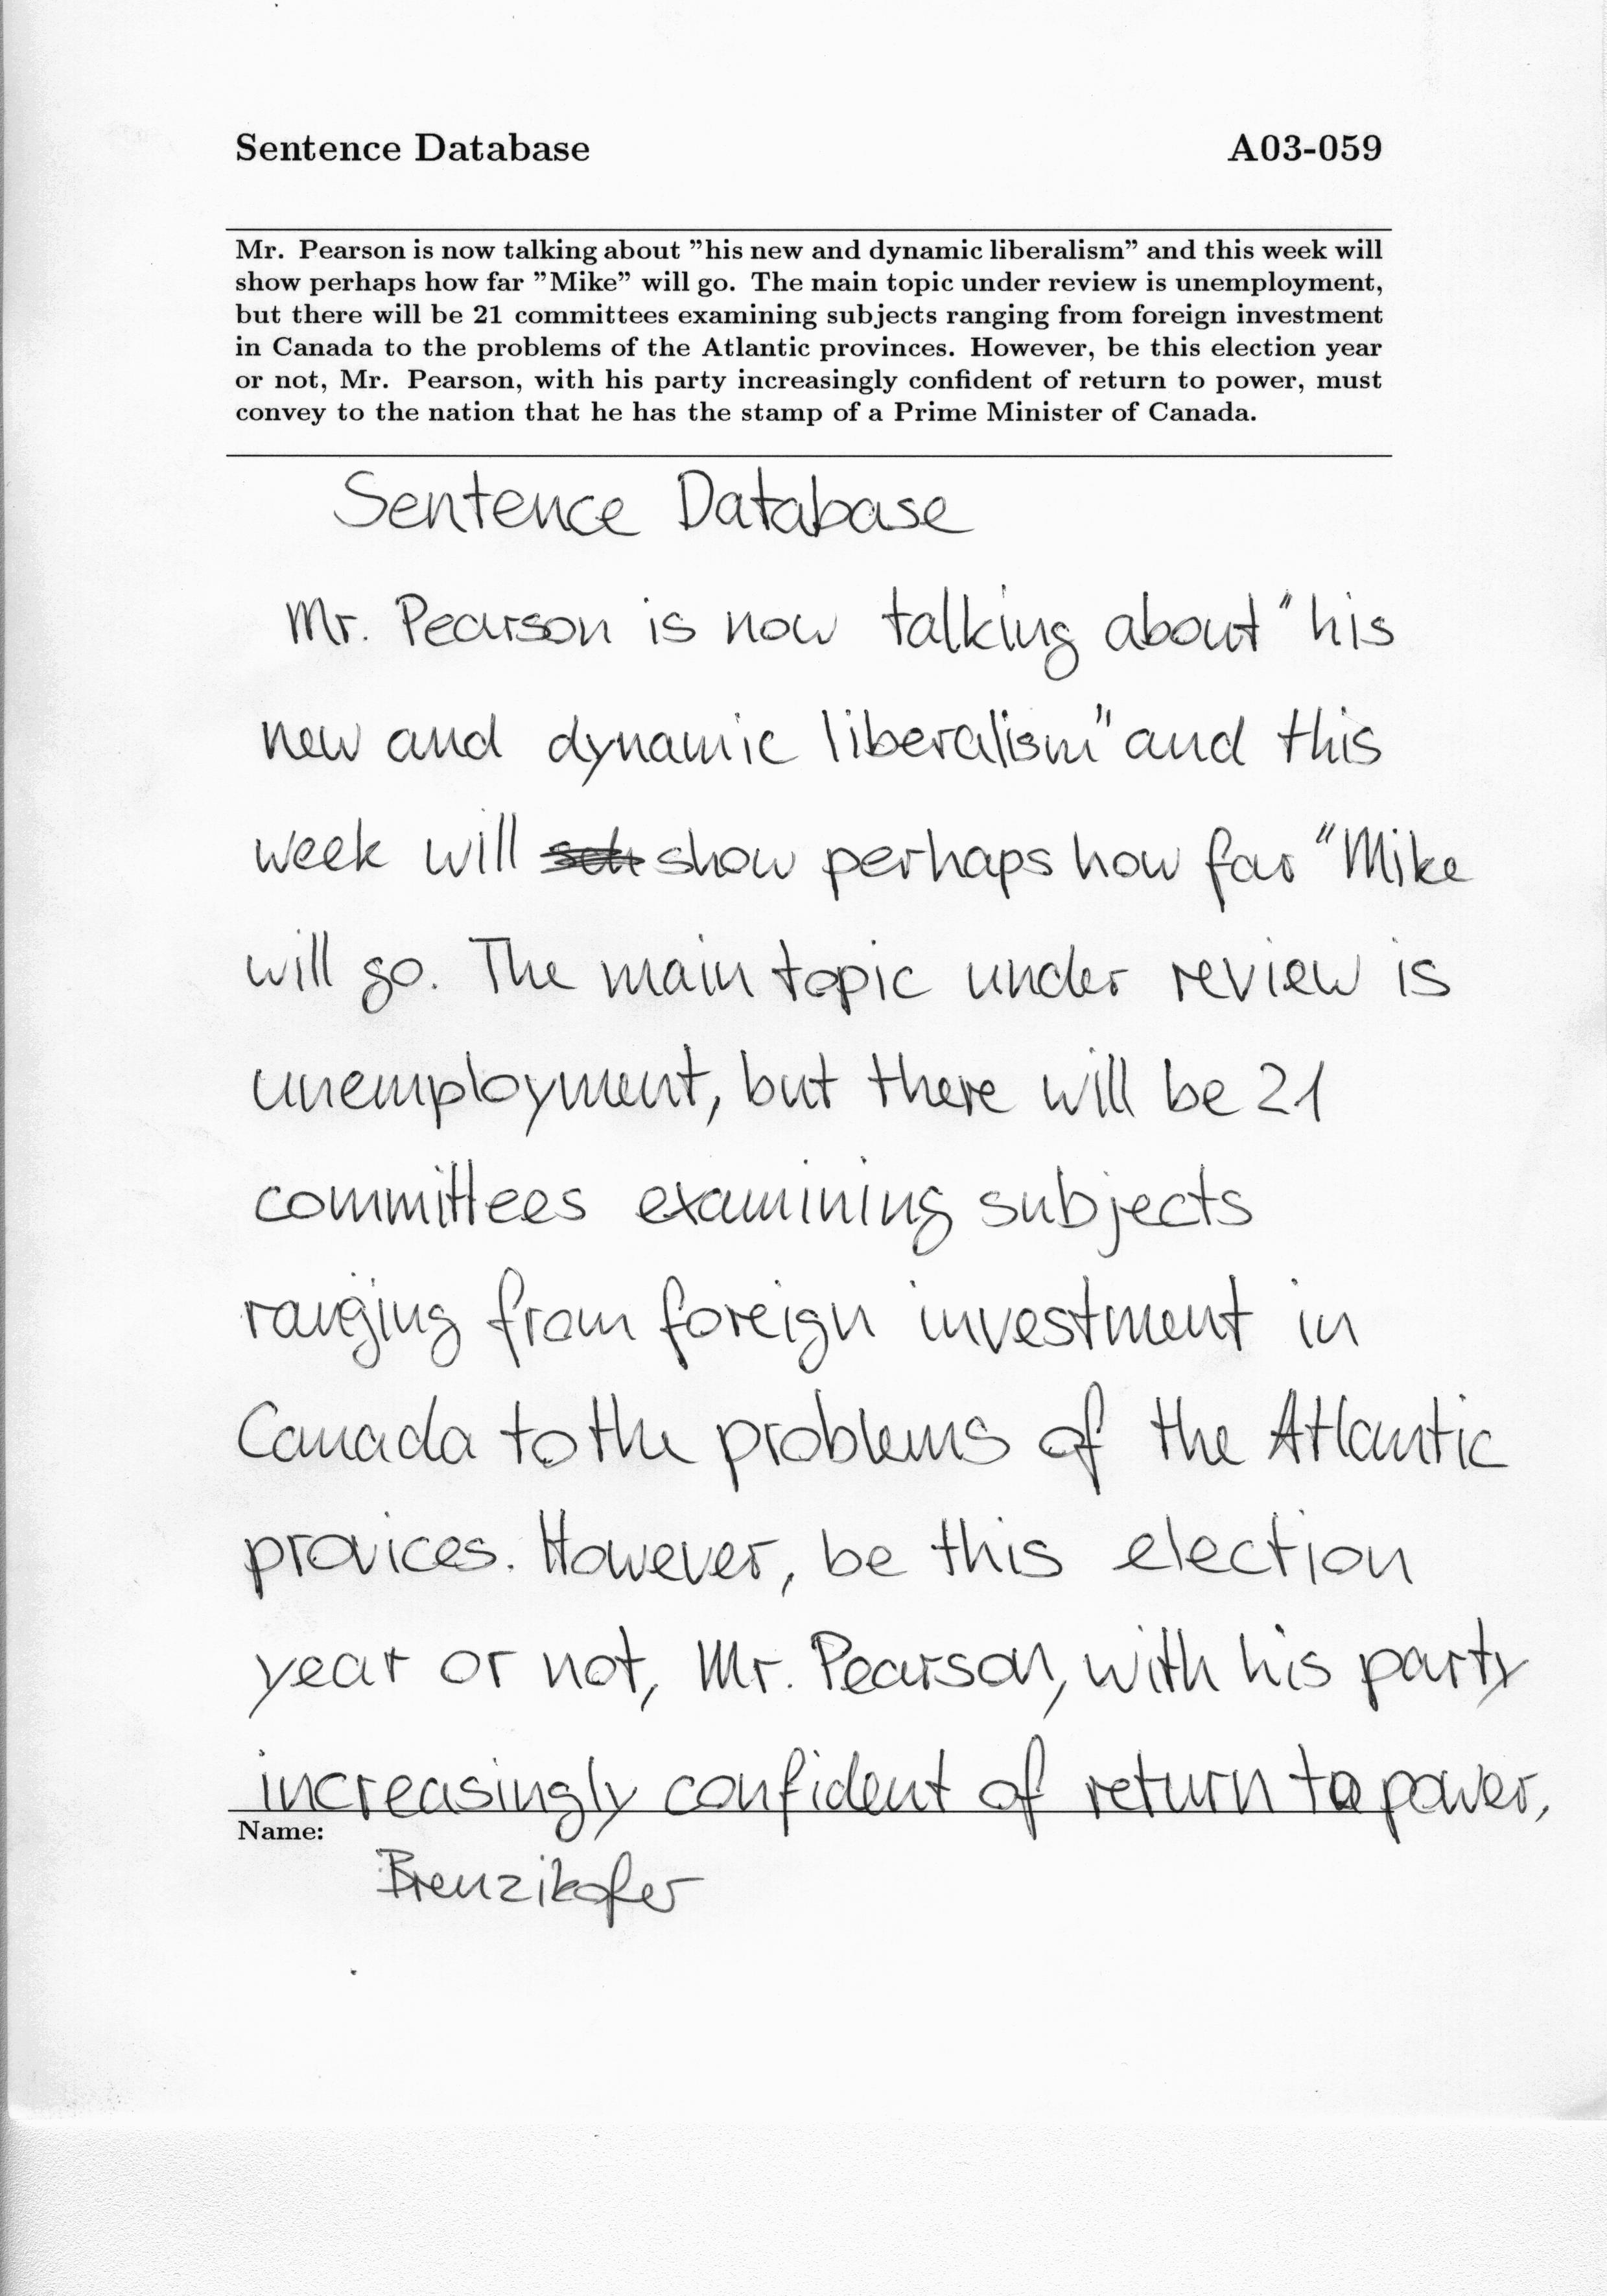 Sentence Database A03-059
Mr. Pearson is now talking about ”his new and dynamic liberalism” and this week will
show perhaps how far ”Mike” will go. The main topic under review is unemployment,
but there will be 21 committees examining subjects ranging from foreign investment
in Canada to the problems of the Atlantic provinces. However, be this election year
or not, Mr. Pearson, with his party increasingly confident of return to power, must
convey to the nation that he has the stamp of a Prime Minister of Canada.
Sentence Database
Mr. Pearson is now talking about "his
new and dynamic liberalism" and this
week will show perhaps how far "Mike
will go. The main topic under review is
unemployment, but there will be 21
committees examining subjects
ranging from foreign investment in
Canada to the problems of the Atlantic
provices. However, be this election
year or not, Mr. Pearson, with his party
increasingly confident of return to power,
Name:
Brenzikofer